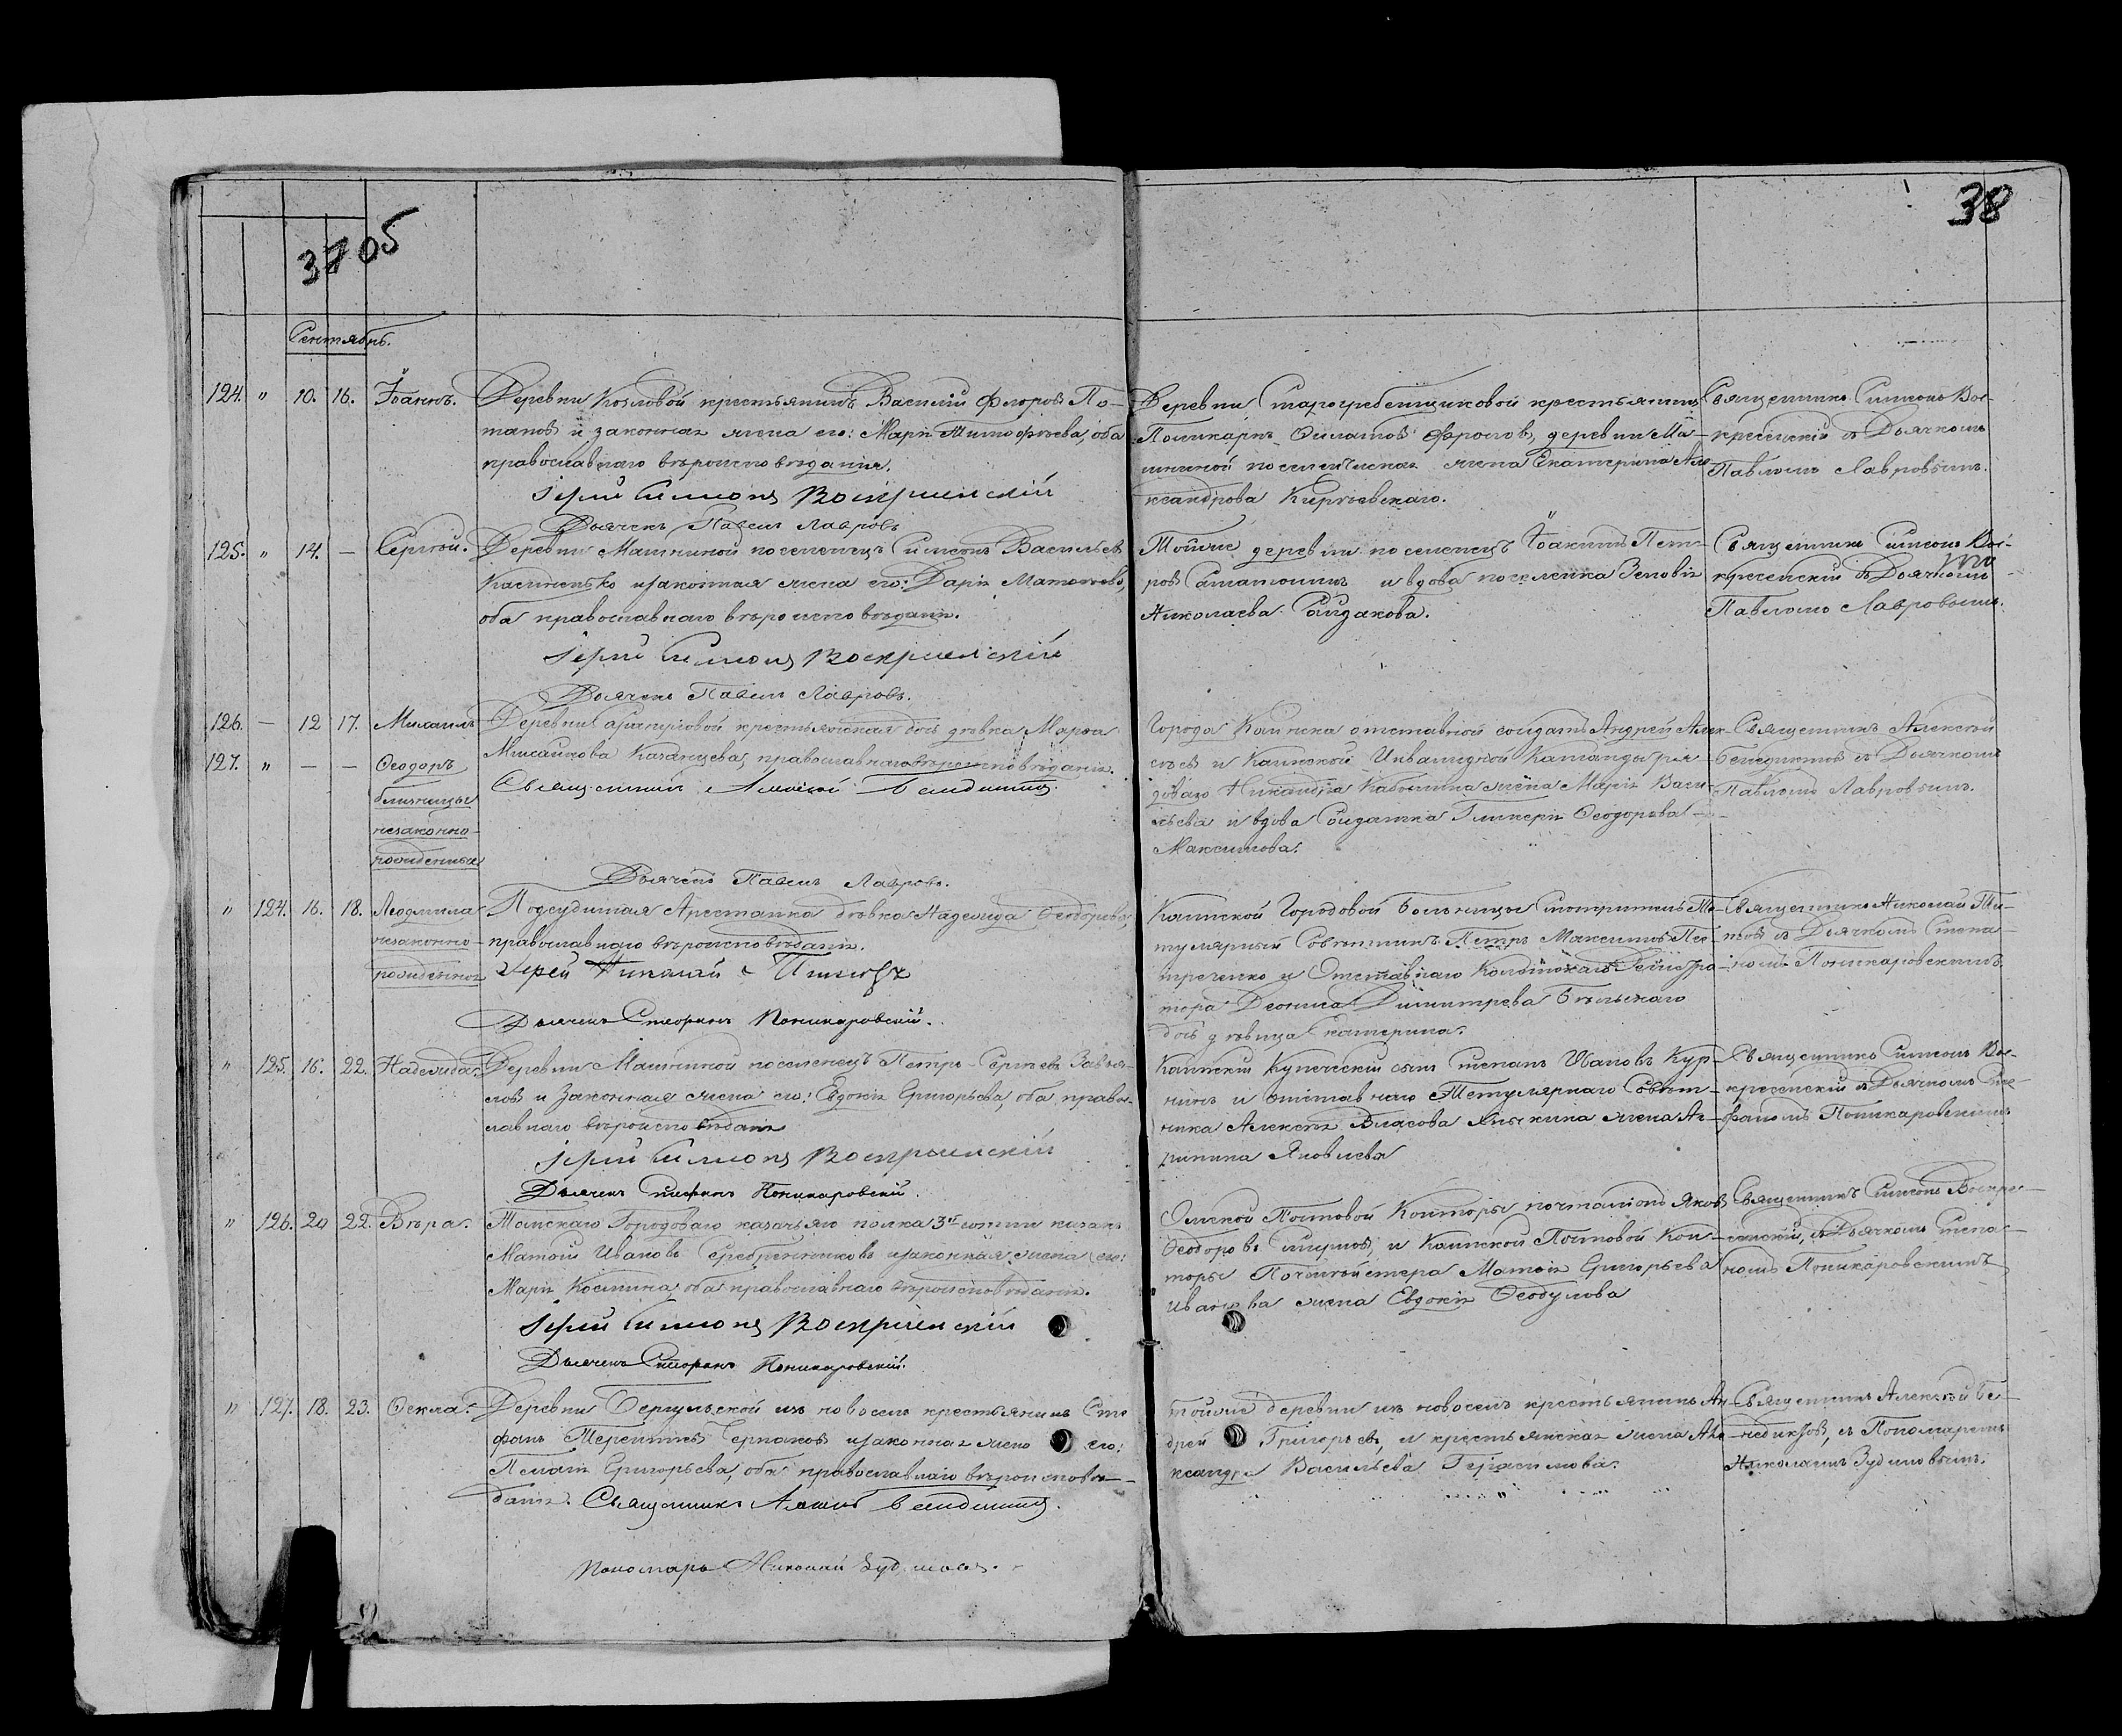 3705
38
Сентябрь.
124. " 10. 16. Іоаннъ.
Деревни Козловой крестьянинъ Василій Флоровъ По-
таповъ и законная жена его: Марія Тимофѣева, оба
православнаго вѣроисповѣданія.
Іерей Симеонъ Воскресенскій
Дьячекъ Павелъ Лавровъ
Деревни Старогребенщиковой крестьянинъ
Поликарпъ Филатовъ Фроловъ, деревни Ма-
шниной поселенческая жена Екатерина Але-
ксандрова
Священникъ Симеонъ Вос-
кресенскій съ Дьячкомъ
Павломъ Лавровымъ.
125. " 14. — Сергѣй.
Деревни Машниной поселенецъ Симеонъ Васильевъ
и законная жена его: Дарія
оба православнаго вѣроисповѣданія.
Іерей Симеонъ Воскресенскій
Дьячекъ Павелъ Лавровъ.
Тойже деревни поселенецъ Іоакимъ Пет-
ровъ и вдова поселенка Зеновія
Николаева
Священникъ Симеонъ Вос-
кресенскій съ Дьячкомъ
Павломъ Лавровымъ.
126. — 12 17. Михаилъ
127. " — — Ѳеодоръ
близнецы
незаконно-
рожденные
Деревни крестьянская дочь дѣвка Марѳа
Казанцева, православнаго вѣроисповѣданія.
Священникъ Алексѣй Бенедиктовъ
Дьячекъ Павелъ Лавровъ.
Города Каинска отставной солдатъ Андрей Алек-
сѣевъ и Каинской Инвалидной Команды ря-
доваго Никандра жена Марія Васи-
льева и вдова Солдатка Гликерія Ѳеодорова
Максимова.
Священникъ Алексѣй
Бенедиктовъ съ Дьячкомъ
Павломъ Лавровымъ.
" 124. 16. 18. Людмила
незаконно-
рожденная
Подсудимая Арестантка дѣвка Надежда Ѳеодорова,
православнаго вѣроисповѣданія.
Іерей Николай Титовъ
Дьячекъ Стефанъ Поникаровскій.
Каинской Городовой больницы Смотритель Ти-
тулярный Совѣтникъ Петръ Максимовъ Пе-
и Отставнаго Коллежскаго Регистра-
тора Димитріева Бѣльскаго
дочь дѣвица Екатерина.
Священникъ Николай Ти-
товъ съ Дьячкомъ Степа-
номъ Поникаровскимъ.
" 125. 16. 22. Надежда.
Деревни Машниной поселенецъ Петръ Сергѣевъ Завья-
ловъ и законная жена его: Евдокія Григорьева, оба право-
славнаго вѣроисповѣданія
Іерей Симеонъ Воскресенскій
Дьячекъ Стефанъ Поникаровскій.
Каинскій Купеческій сынъ Степанъ Ивановъ Кур-
и отставнаго Титулярнаго Совѣт-
ника Алексѣя Власова жена Аг-
рипина Яковлева
Священникъ Симеонъ Вос-
кресенскій съ Дьячкомъ Сте-
фаномъ Поникаровскимъ
" 126. 20 22. Вѣра.
Томскаго Городоваго казачьяго полка 3й сотни казакъ
Матвѣй Ивановъ Серебренниковъ и законная жена его:
Марія Космина, оба православнаго вѣроисповѣданія.
Іерей Симеонъ Воскресенскій
Дьячекъ Стефанъ Поникаровскій.
Омской Почтовой Конторы почталіонъ Яковъ
Ѳеодоровъ Смирновъ, и Каинской Почтовой Кон-
торы Почтмейстера Матвѣя Григорьева
Иванова жена Евдокія Ѳеодулова
Священникъ Симеонъ Воскре-
сенскій, съ Дьячкомъ Степа-
номъ Поникаровскимъ
" 127. 18. 23. Ѳекла.
Деревни изъ новоселъ крестьянинъ Сте-
фанъ Терентьевъ и законная жена его:
Пелагія Григорьева, оба православнаго вѣроисповѣ-
данія. Священникъ Алексѣй Бенедиктовъ.
Пономарь Николай Зудиловъ.
тойже деревни изъ новоселъ крестьянинъ Ан-
дрей Григорьевъ, и крестьянская жена Але-
ксандра Васильева Герасимова.
Священникъ Алексѣй Бе-
недиктовъ, съ Пономаремъ
Николаемъ Зудиловымъ.